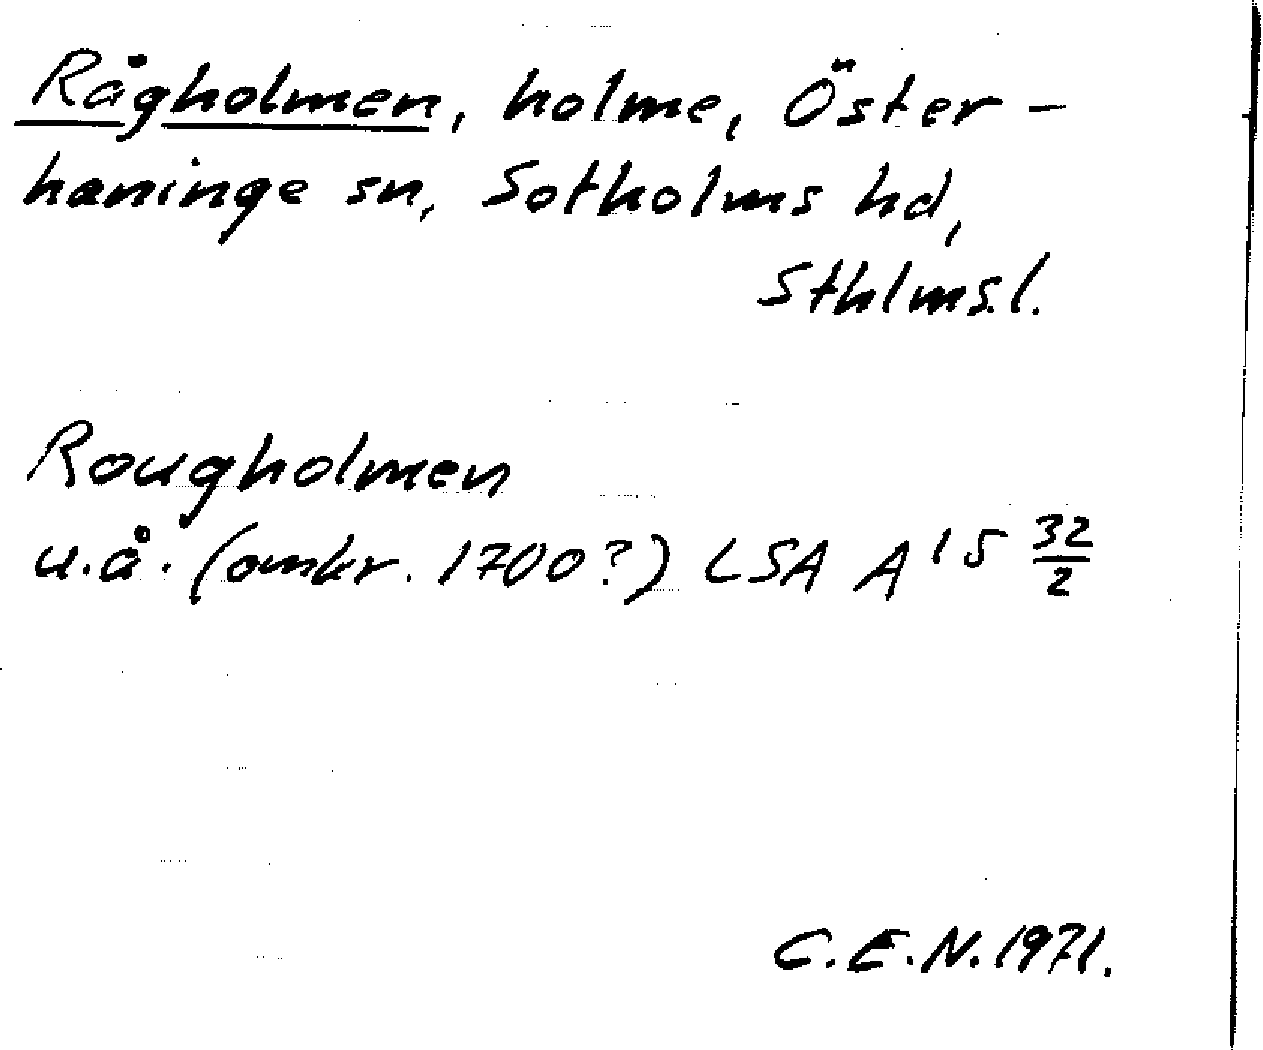 Rågholmen, holme, Öster-
haninge sn, Sotholms hd,
Sthlms.l.
Rougholmen
u.å. (omkr. 1700?) LSA A 15 32/2
C.E.N. 1971.